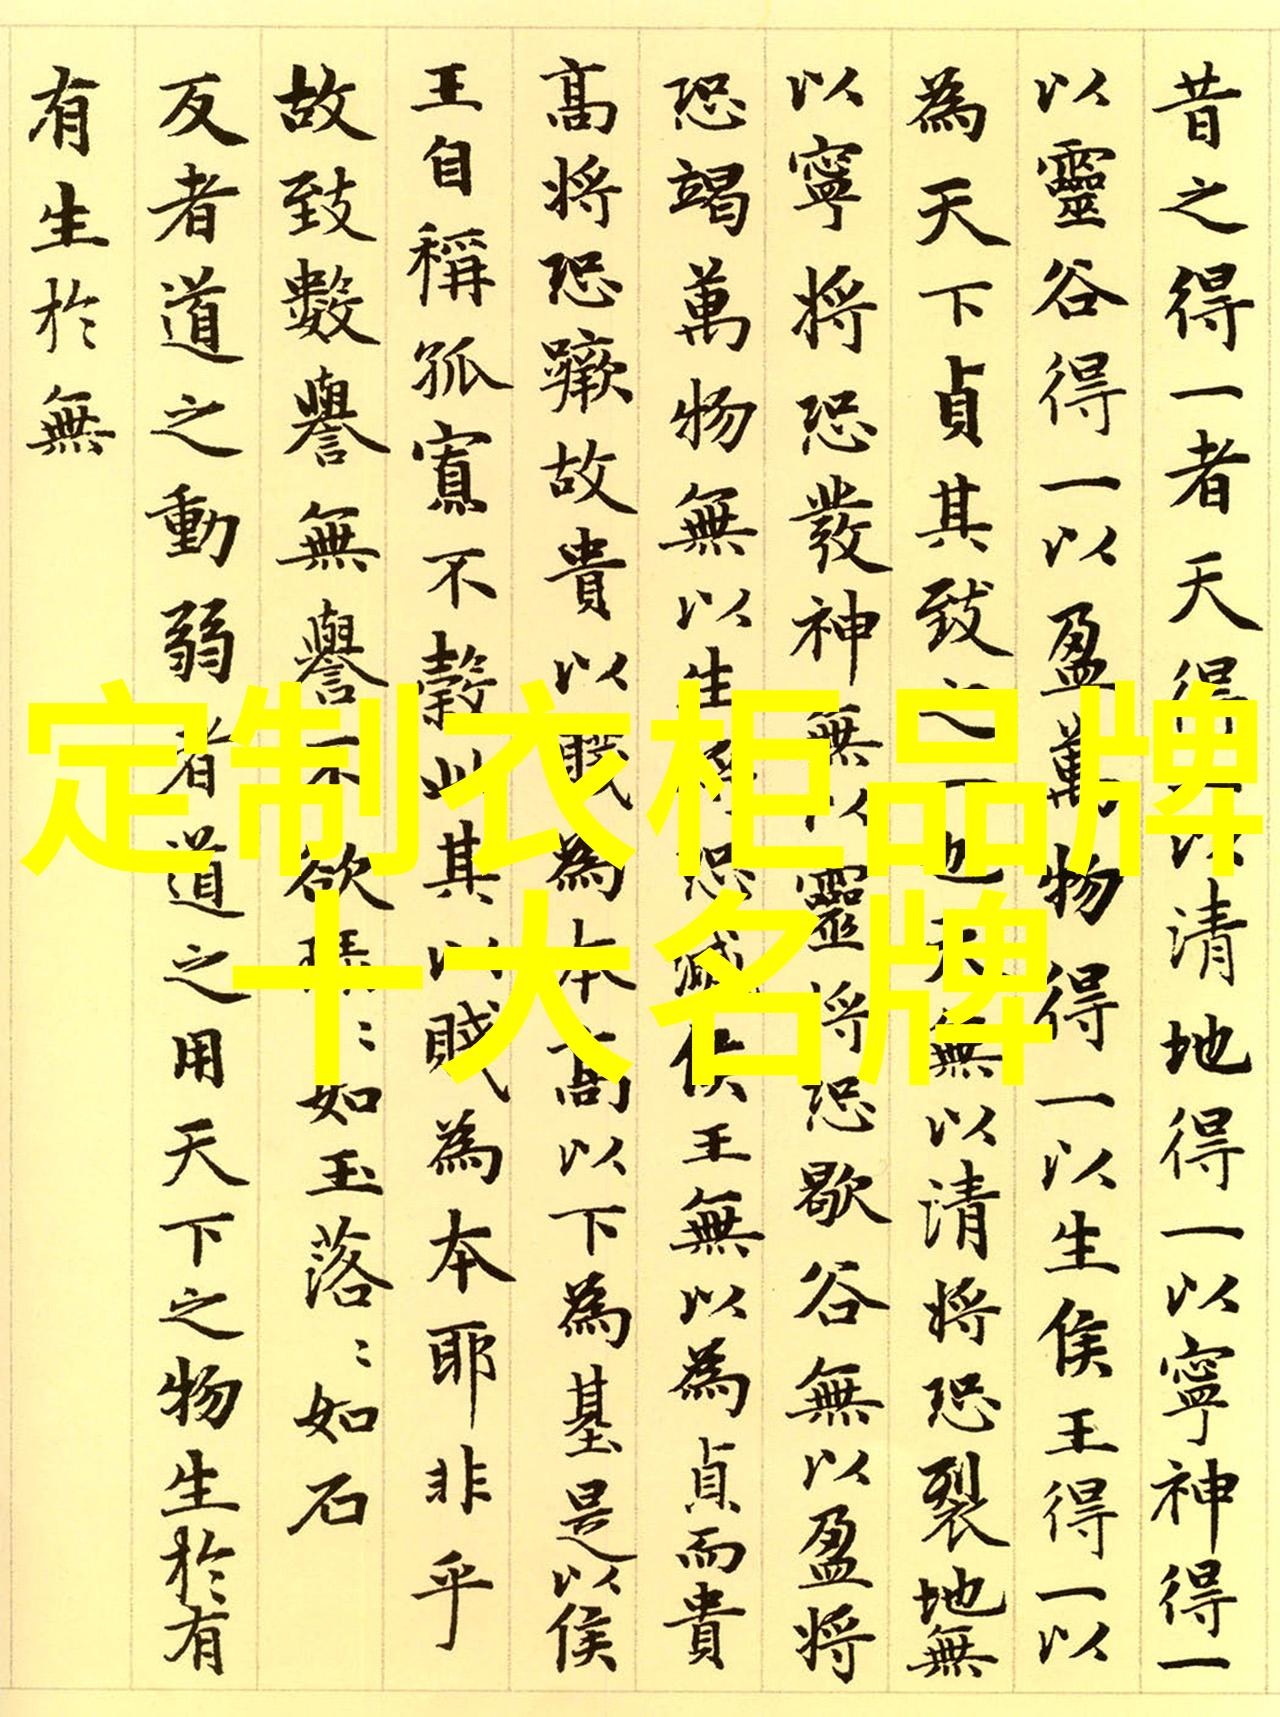 昔之得一者天得一以清地得一以寧神得一
以靈谷得一以盈萬物得一以生侯王得一以
為天下貞其致之一也天無以清將恐裂地無
以寧將恐發神無以靈將恐歇谷無以盈將
恐竭萬物無以生將恐滅侯王無以為貞而貴
高將恐蹶故貴以賤為本高以下為基是以侯
王自稱孤寡不穀此其以賤為本耶非乎
故致數譽無譽不欲琭:如玉落:如石
反者道之動弱者道之用天下之物生於有
有生於無
定制衣柜品牌
十大名牌